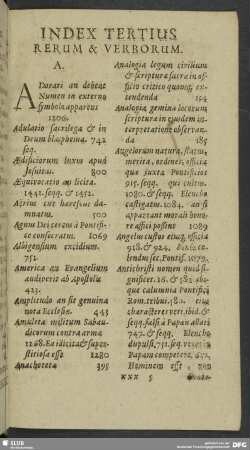 INDEX TERTIUS
RERUM & VERBORUM.
A.
ADorari an debeat
Numen in externo
symbolo apparens
1206.
Adulatio sacrilega & in
Deum blasphema. 742
seq.
Ædificiorum luxus apud
Jesuitas. 800
Æquivocatio an licita.
1441. seqq. & 1452.
Aerius cur haereseos damnatus.
500
Agnus Dei cereus à Pontifice
consecratus. 1069
Albigensium excidium.
751.
America an Evangelium
audiverit ab Apostolis
423.
Amplitudo an sit genuina
nota Ecclesiae. 443
Amuleta militum Sabaudicorum
contra arma
1228. Ea illicita & superstitiosa
esse 1280
Anachoreta 395
Analogia legum civilium
& scripturae sacrae in officio
critico quousq; extendenda
194
Analogia gemina locorum
scripturae in ejusdem interpretatione
observanda
185
Angelorum natura, status,
merita, ordines, officia
quae juxta Pontificios
915. seqq. qui cultus.
1080. & seqq. Elenchus
castigatus. 1084. an si
appareant morali honore
affici possent 1089
Angelus custos ejusq; officia
918. & 924.
Pontif. 1079.
Antichristi nomen quid significet.
26. & 582
calumnia Pontificis
Rom. tribui. 580. ejus
characteres veri. ibid. &
seqq. falsi à Papa allati
747. & seqq. Elenchus
dupulsi. 751. seq.
Papam competere. 652.
Hominem esse
xxx 5
SLUB
DFG